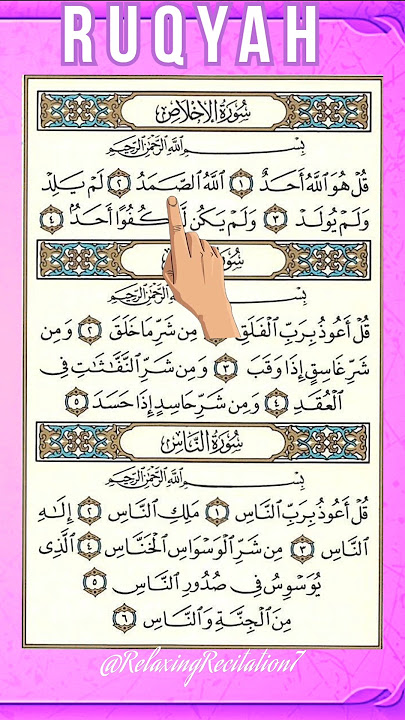 RUQYAH
سُورَةُ الإِخْلَاصِ
بِسْمِ ٱللَّهِ ٱلرَّحْمَٰنِ ٱلرَّحِيمِ
قُلْ هُوَ ٱللَّهُ أَحَدٌ ١ ٱللَّهُ ٱلصَّمَدُ ٢ لَمْ يَلِدْ
وَلَمْ يُولَدْ ٣ وَلَمْ يَكُن كُفُوًا أَحَدٌ ٤
سُورَةُ
بِسْمِ ٱللَّهِ ٱلرَّحْمَٰنِ ٱلرَّحِيمِ
قُلْ أَعُوذُ بِرَبِّ ٱلْفَلَقِ مِن شَرِّ مَا خَلَقَ ٢ وَمِن
شَرِّ غَاسِقٍ إِذَا وَقَبَ ٣ وَمِن شَرِّ ٱلنَّفَّٰثَٰتِ فِى
ٱلْعُقَدِ ٤ وَمِن شَرِّ حَاسِدٍ إِذَا حَسَدَ ٥
سُورَةُ النَّاسِ
بِسْمِ ٱللَّهِ ٱلرَّحْمَٰنِ ٱلرَّحِيمِ
قُلْ أَعُوذُ بِرَبِّ ٱلنَّاسِ ١ مَلِكِ ٱلنَّاسِ ٢ إِلَٰهِ
ٱلنَّاسِ ٣ مِن شَرِّ ٱلْوَسْوَاسِ ٱلْخَنَّاسِ ٤ ٱلَّذِى
يُوَسْوِسُ فِى صُدُورِ ٱلنَّاسِ ٥
مِنَ ٱلْجِنَّةِ وَٱلنَّاسِ ٦
@RelaxingRecitation7